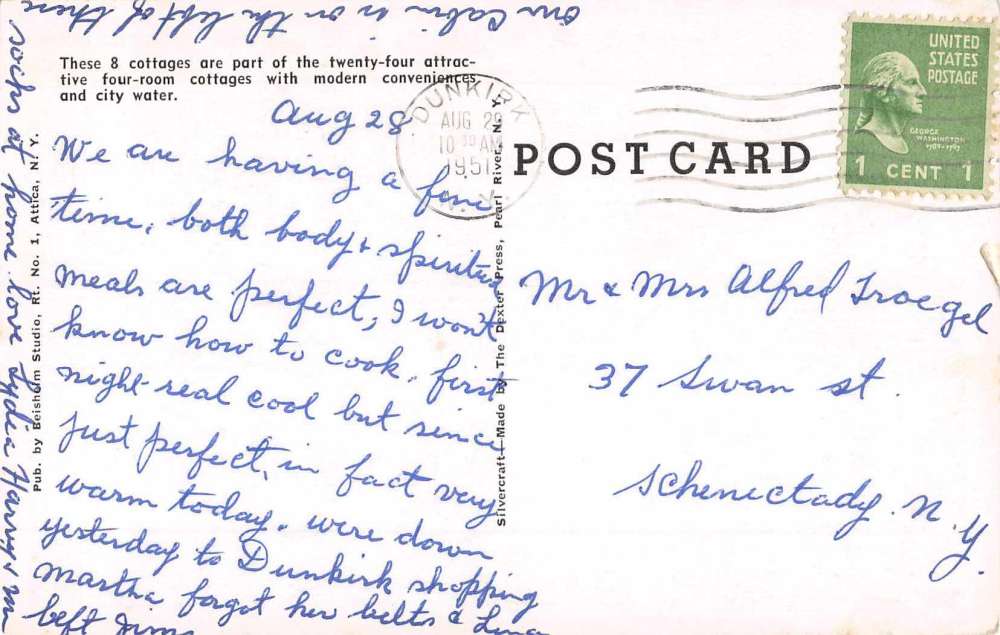 These 8 cottages are part of the twenty-four attrac-
tive four-room cottages with modern conveniences
and city water.
Aug 28
We are having a fine
time, both body & spiritual
meals are perfect, I won't
know how to cook, first
night real cool but since
just perfect, in fact very
warm today. were down
yesterday to Dunkirk shopping
Martha forgot her belts &
left Jims
socks at home love Lydia Harry &
Our Cabin is on the left of these
Pub. by Beisheim Studio, Rt. No. 1, Attica, N. Y.
Silvercraft — Made by The Dexter Press, Pearl River, N. Y.
DUNKIRK
AUG 29
10 30 AM
1951
N. Y.
POST CARD
UNITED
STATES
POSTAGE
GEORGE
WASHINGTON
1789-1797
1 CENT 1
Mr & Mrs Alfred Troegel
37 Swan st.
Schenectady. N. Y.